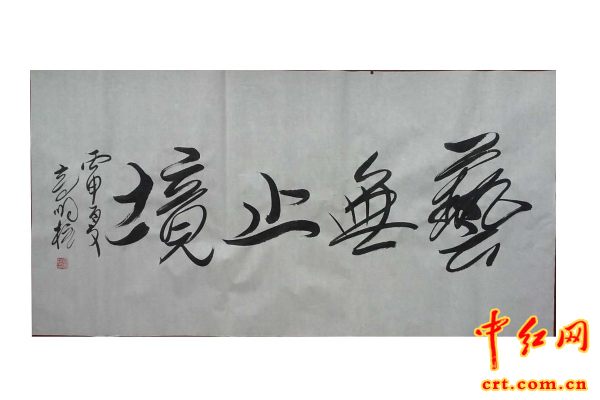 藝無止境
丙申夏
中红网
crt.com.cn